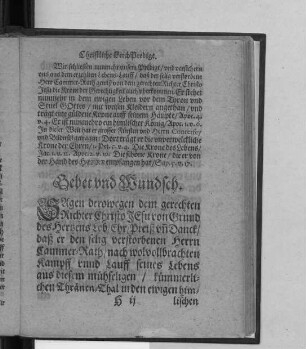 Christliche Leich-Predigt.
Wir schliessen unsere heutige Predigt / und versichern
uns aus dem erzehlten Lebens-Lauff / daß der selig verstorbene
Herr Cammer-Rath von dem gerechten Richter Christo
Jesu die Krone der Gerechtigkeit
nunmehr in dem ewigen Leben vor dem Thron und
Stuel GOttes / mit weissen Kleidern angethan / und
trägt eine güldene Krone auff seinem Haupte / Apoc. 4.
v. 4. Er ist nunmehro ein himmlischer König / Apoc. 1. v. 6.
In dieser Welt hat er grosser Fürsten und Herrn
Dort trägt er die unverwelckliche
Krone der Ehren / 1. Pet. 5. v. 4. Die Krone des Lebens /
Jac. 1. v. 12. Apoc. 2. v. 10. Die schöne Krone / die er von
der Hand des HErrn empfangen hat / Sap. 5. v. 17.
Gebet vnd Wunsch.
SAgen derowegen dem gerechten
Richter Christo JEsu von Grund
des Hertzens Lob / Ehr / Preiß vñ Danck /
daß er den selig verstorbenen Herrn
Cammer-Rath / nach wolvollbrachten
Kampff vnnd Lauff seines Lebens
aus diesem mühseligen / kümmerli-
chen Thränen-Thal in den ewigen him-
H ij lischen